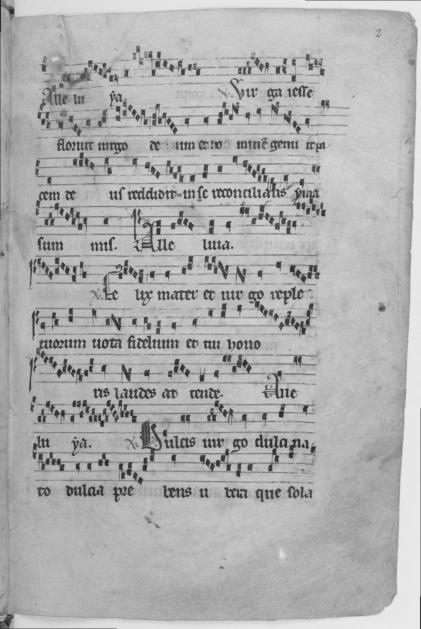 2
Alle lu ya ℣. Vir ga iesse
floruit uirgo de um et ho minē genu it pa
cem de us reddidit in se reconcilians yma
sum mis. Alle luia.
℣. Fe lix mater et uir go reple
tuorum uota fidelium et tui hono
ris laudes at tende. Alle
lu ya. ℣. Dulcis uir go dulci na
to dulcia pre bens u bera que sola